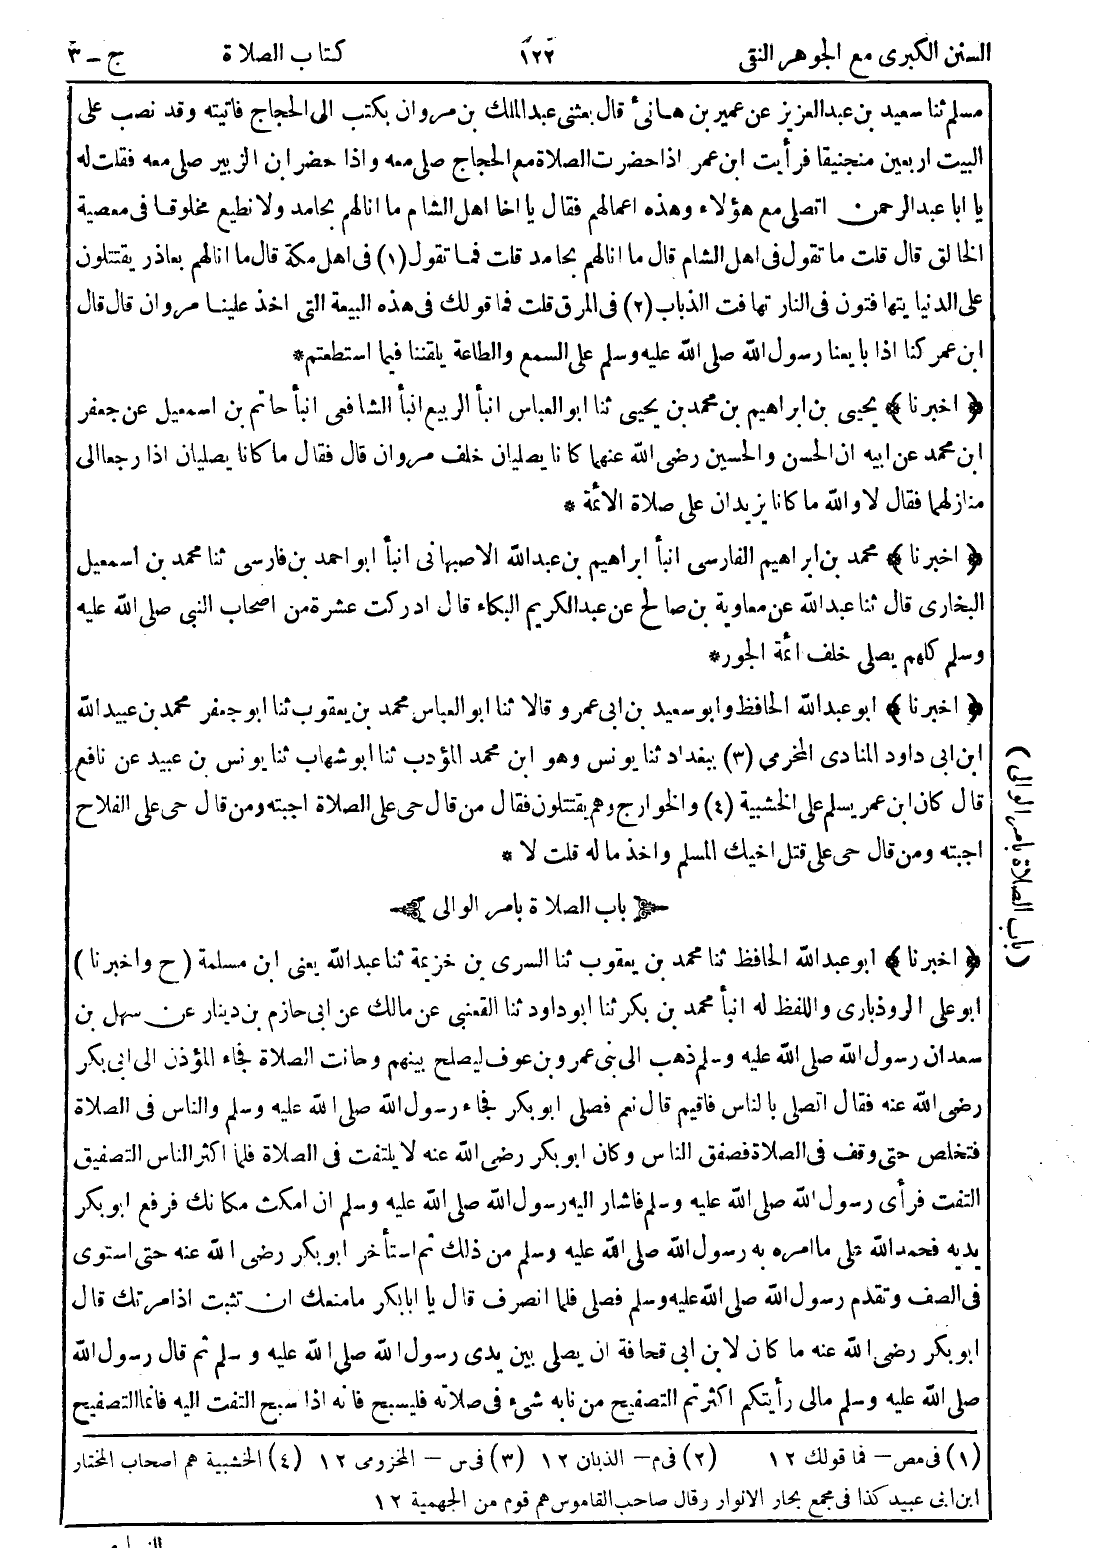 السنن الكبرى مع الجوهر النقى ١٢٢ كتاب الصلاة ج - ٣
مسلم ثنا سعيد بن عبدالعزيز عن عمير بن هانئ قال بعثنى عبدالملك بن مروان بكتب الى الحجاج فاتيته وقد نصب على
البيت اربعين منجنيقا فرأيت ابن عمر اذا حضرت الصلاة مع الحجاج صلى معه واذا حضر ابن الزبير صلى معه فقلت له
يا ابا عبدالرحمن اتصلى مع هؤلاء وهذه اعمالهم فقال يا اخا اهل الشام ما انا لهم بحامد ولا نطيع مخلوقا فى معصية
الخالق قال قلت ما تقول فى اهل الشام قال ما انا لهم بحامد قلت فما تقول (١) فى اهل مكة قال ما انا لهم بعاذر يقتتلون
على الدنيا يتهافتون فى النار تهافت الذباب (٢) فى المرق قلت فما قولك فى هذه البيعة التى اخذ علينا مروان قال قال
ابن عمر كنا اذا بايعنا رسول الله صلى الله عليه وسلم على السمع والطاعة يلقننا فيما استطعتم*
﴿ اخبرنا ﴾ يحيى بن ابراهيم بن محمد بن يحيى ثنا ابو العباس انبأ الربيع انبأ الشافعى انبأ حاتم بن اسمعيل عن جعفر
ابن محمد عن ابيه ان الحسن والحسين رضى الله عنهما كانا يصليان خلف مروان قال فقال ما كانا يصليان اذا رجعا الى
منازلهما فقال لا والله ما كانا يزيدان على صلاة الائمة *
﴿ اخبرنا ﴾ محمد بن ابراهيم الفارسى انبأ ابراهيم بن عبدالله الاصبهانى انبأ ابو احمد بن فارسى ثنا محمد بن اسمعيل
البخارى قال ثنا عبدالله عن معاوية بن صالح عن عبدالكريم البكاء قال ادركت عشرة من اصحاب النبى صلى الله عليه
وسلم كلهم يصلى خلف ائمة الجور*
﴿ اخبرنا ﴾ ابو عبدالله الحافظ وابو سعيد بن ابى عمرو قالا ثنا ابو العباس محمد بن يعقوب ثنا ابو جعفر محمد بن عبيدالله
ابن ابى داود المنادى المخرمي (٣) ببغداد ثنا يونس وهو ابن محمد المؤدب ثنا ابو شهاب ثنا يونس بن عبيد عن نافع
قال كان ابن عمر يسلم على الخشبية (٤) والخوارج وهم يقتتلون فقال من قال حى على الصلاة اجبته ومن قال حى على الفلاح
اجبته ومن قال حى على قتل اخيك المسلم واخذ ماله قلت لا *
باب الصلاة بامر الوالى
(باب الصلاة بامر الوالى)
﴿ اخبرنا ﴾ ابو عبدالله الحافظ ثنا محمد بن يعقوب ثنا السرى بن خزيمة ثنا عبدالله يعنى ابن مسلمة (ح واخبرنا)
ابو على الروذبارى واللفظ له انبأ محمد بن بكر ثنا ابو داود ثنا القعنبى عن مالك عن ابى حازم بن دينار عن سهل بن
سعد ان رسول الله صلى الله عليه وسلم ذهب الى بنى عمرو بن عوف ليصلح بينهم وحانت الصلاة فجاء المؤذن الى ابى بكر
رضى الله عنه فقال اتصلى بالناس فاقيم قال نعم فصلى ابو بكر فجاء رسول الله صلى الله عليه وسلم والناس فى الصلاة
فتخلص حتى وقف فى الصلاة فصفق الناس وكان ابو بكر رضى الله عنه لا يلتفت فى الصلاة فلما اكثر الناس التصفيق
التفت فرأى رسول الله صلى الله عليه وسلم فاشار اليه رسول الله صلى الله عليه وسلم ان امكث مكانك فرفع ابو بكر
يديه فحمد الله على ما امره به رسول الله صلى الله عليه وسلم من ذلك ثم استأخر ابو بكر رضى الله عنه حتى استوى
فى الصف وتقدم رسول الله صلى الله عليه وسلم فصلى فلما انصرف قال يا ابابكر ما منعك ان تثبت اذ امرتك قال
ابو بكر رضى الله عنه ما كان لابن ابى قحافة ان يصلى بين يدى رسول الله صلى الله عليه وسلم ثم قال رسول الله
صلى الله عليه وسلم مالى رأيتكم اكثرتم التصفيح من نابه شىء فى صلاته فليسبح فانه اذا سبح التفت اليه فانما التصفيح
(١) فى مص - فما قولك ١٢ (٢) فى م - الذبان ١٢ (٣) فى س - المخزومى ١٢ (٤) الخشبية هم اصحاب المختار
ابن ابى عبيد كذا فى مجمع بحار الانوار وقال صاحب القاموس هم قوم من الجهمية ١٢